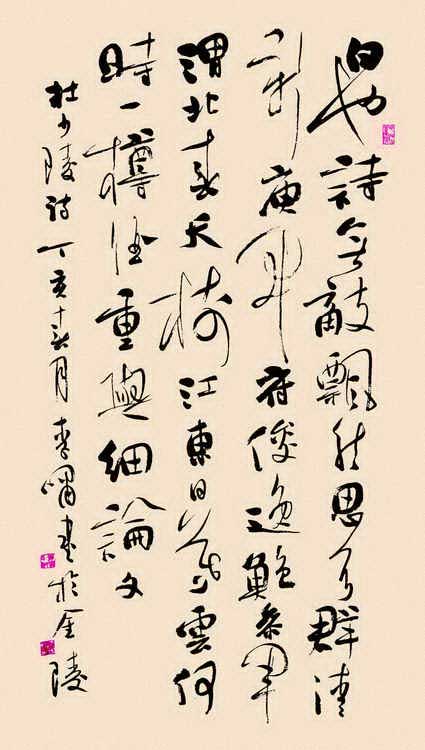 白也詩無敵飄然思不群清
新庾開府俊逸鮑參軍
渭北春天樹江東日暮雲何
時一樽酒重與細論文
杜少陵詩丁亥十月李嘯書於金陵